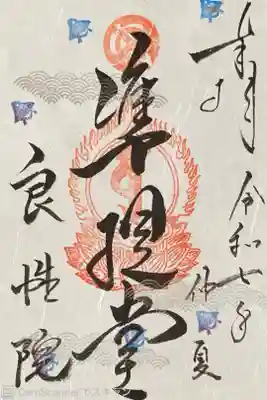 奉拝
令和七年
仲夏
準提堂
良性院
CamScanner でスキャン